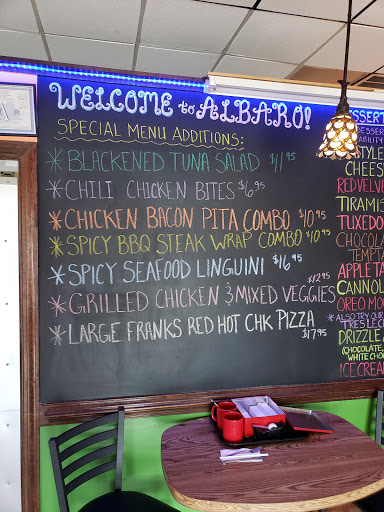 WELCOME to ALBARO!
SPECIAL MENU ADDITIONS:
* BLACKENED TUNA SALAD $11.95
* CHILI CHICKEN BITES $6.95
* CHICKEN BACON PITA COMBO $10.95
* SPICY BBQ STEAK WRAP COMBO $10.95
* SPICY SEAFOOD LINGUINI $16.95
* GRILLED CHICKEN & MIXED VEGGIES $12.95
* LARGE FRANKS RED HOT CHK PIZZA
$17.95
DESSERT
STYLE
CHEES
RED VELV
TIRAMIS
TUXEDO
CHOCOLA
TEMPT
APPLE TA
CANNOL
OREO MO
* ALSO TRY OUR
TRES LEC
DRIZZLE
(CHOCOLATE,
WHITE CHO
ICE CREA